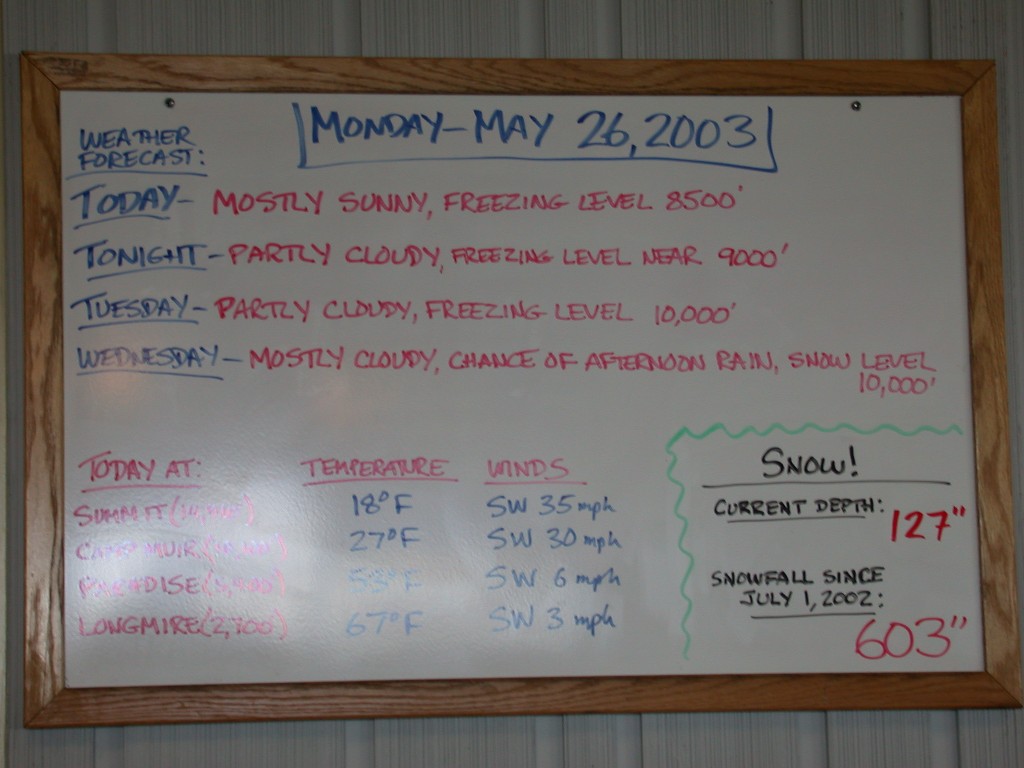 MONDAY-MAY 26, 2003
WEATHER
FORECAST:
TODAY- MOSTLY SUNNY, FREEZING LEVEL 8500'
TONIGHT - PARTLY CLOUDY, FREEZING LEVEL NEAR 9000'
TUESDAY - PARTLY CLOUDY, FREEZING LEVEL 10,000'
WEDNESDAY - MOSTLY CLOUDY, CHANCE OF AFTERNOON RAIN, SNOW LEVEL
10,000'
TODAY AT: TEMPERATURE WINDS
SUMMIT 18°F SW 35 mph
CAMP MUIR 27°F SW 30 mph
PARADISE (5,400') SW 6 mph
LONGMIRE (2,700') 67°F SW 3 mph
SNOW!
CURRENT DEPTH:
127"
SNOWFALL SINCE
JULY 1, 2002:
603"